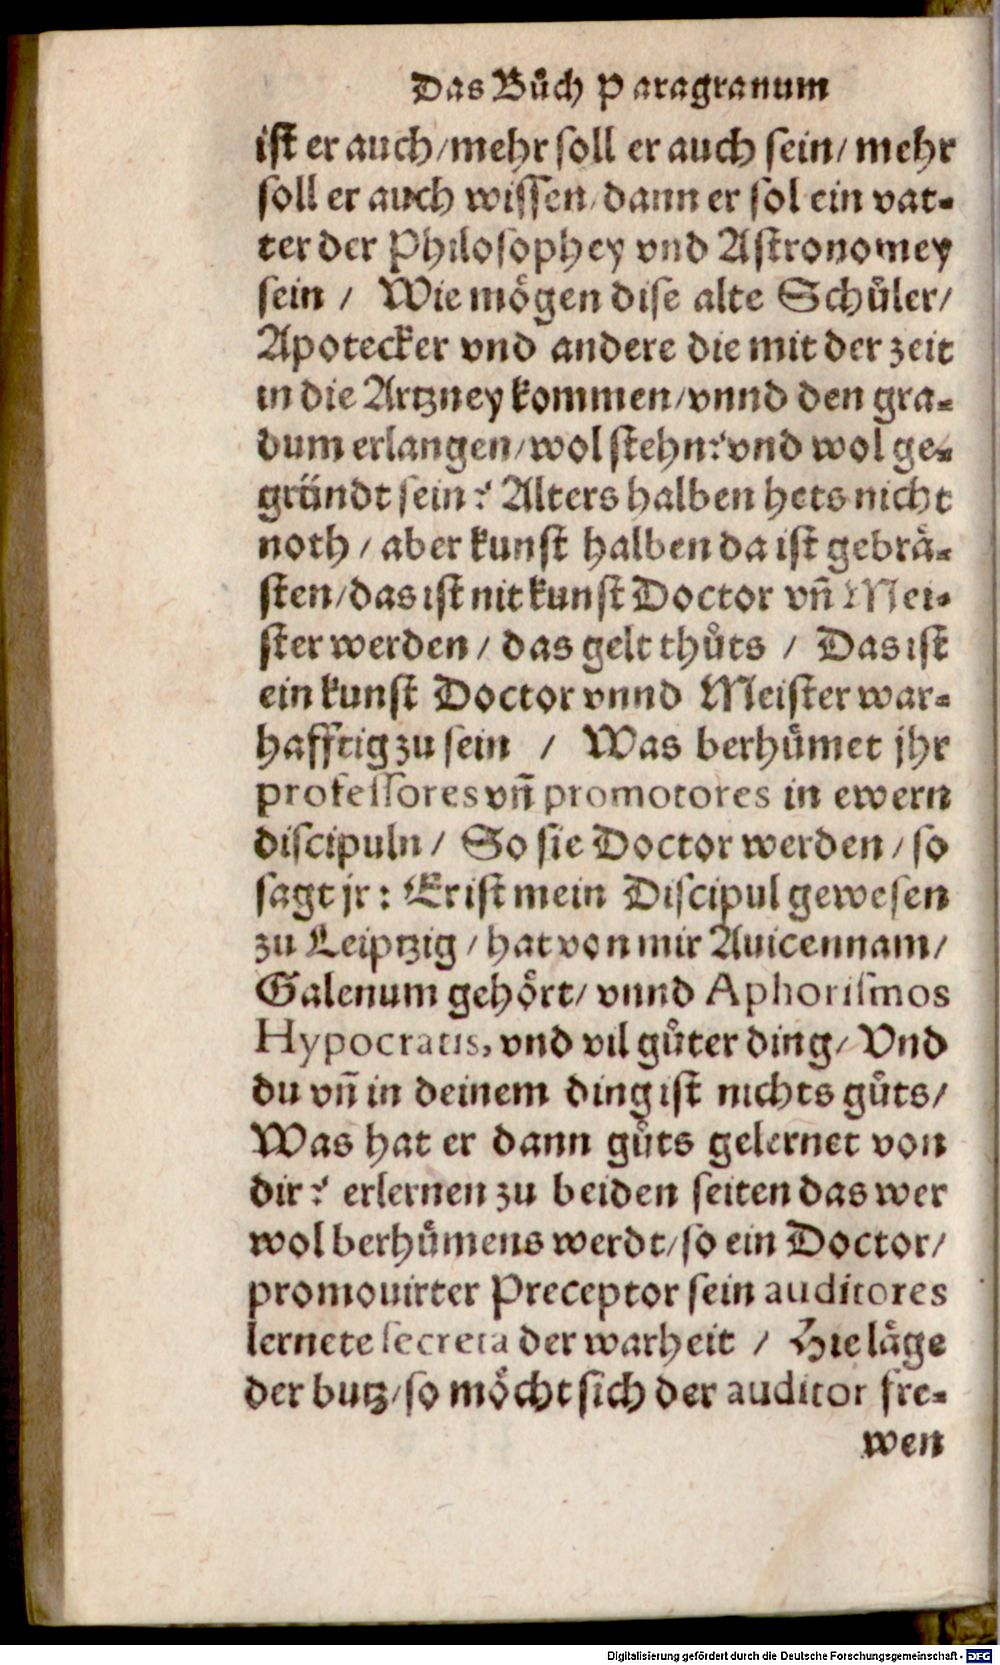 Das Bůch Paragranum
ist er auch/mehr soll er auch sein/ mehr
soll er auch wissen/dann er sol ein vat-
ter der Philosophey vnd Astronomey
sein / Wie mögen dise alte Schůler/
Apotecker vnd andere die mit der zeit
in die Artzney kommen/vnnd den gra-
dum erlangen/wol stehn?vnd wol ge-
gründt sein? Alters halben hets nicht
noth / aber kunst halben da ist gebrä-
sten/das ist nit kunst Doctor vñ Mei-
ster werden / das gelt thůts / Das ist
ein kunst Doctor vnnd Meister war-
hafftig zu sein / Was berhůmet jhr
professores vñ promotores in ewern
discipuln / So sie Doctor werden / so
sagt jr: Er ist mein Discipul gewesen
zu Leiptzig / hat von mir Auicennam/
Galenum gehört/ vnnd Aphorismos
Hypocratis, vnd vil gůter ding/ Vnd
du vñ in deinem ding ist nichts gůts/
Was hat er dann gůts gelernet von
dir? erlernen zu beiden seiten das wer
wol berhůmens werdt/so ein Doctor/
promouirter Preceptor sein auditores
lernete secreta der warheit / Hie läge
der butz/so möcht sich der auditor fre-
wen
Digitalisierung gefördert durch die Deutsche Forschungsgemeinschaft - DFG